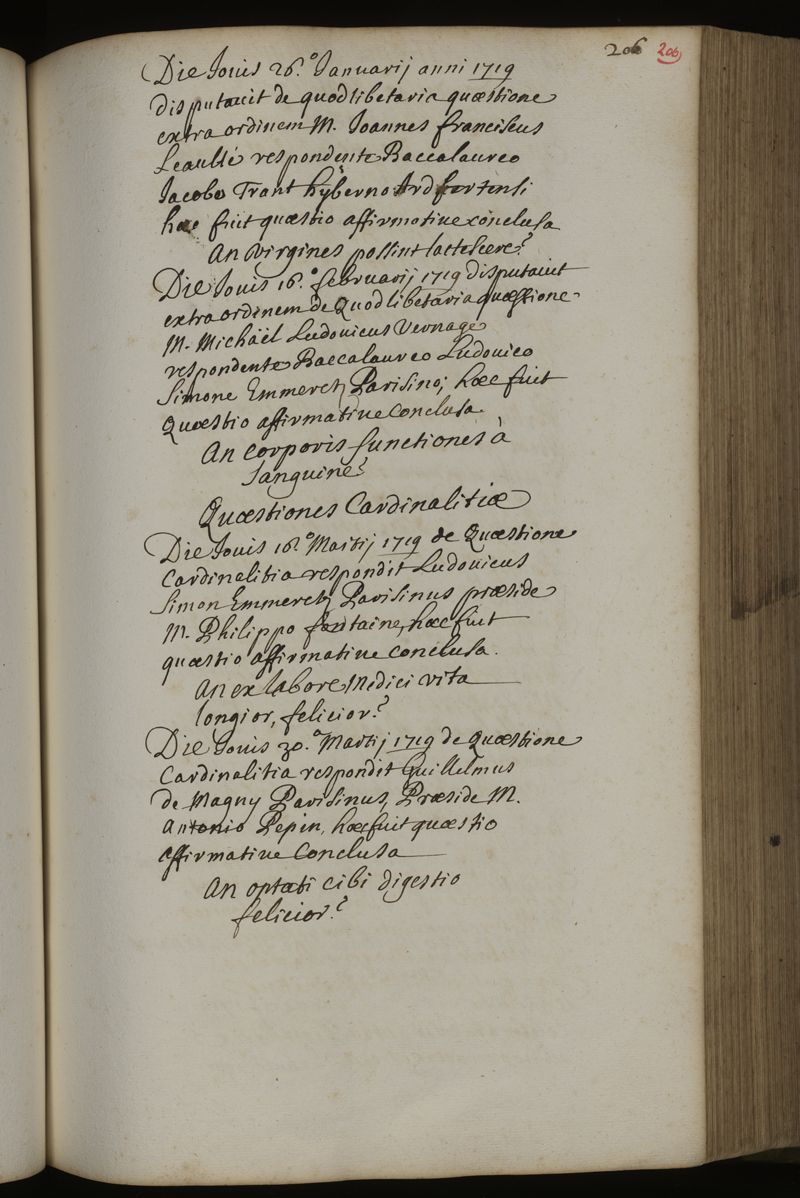 206 206
Die Jouis 26.° Januarij anni 1719
disputauit de quodlibetaria quæstione
extra ordinem M. Joannes franciscus
Leaulté respondente Baccalaureo
Jacobo Trant hÿberno Ardfertensi
hæc fuit quæstio affirmatiue conclusa
An virgines possint lactescere?
Die Jouis 16.° februarij 1719 disputauit
extra ordinem de Quodlibetaria quæstione
M. Michaël Ludouicus Vernage
respondente Baccalaureo Ludouico
Simone Emmerez Parisino; hæc fuit
Quæstio affirmatiue Conclusa.
An corporis functiones à
sanguine?
Quæstiones Cardinalitiæ
Die Jouis 16.° Martij 1719 de Quæstione
Cardinalitia respondit Ludouicus
Simon Emmerez Parisinus præside
M. Philippo fontaine, hæc fuit
quæstio affirmatiue conclusa.
An ex labore Medici vita
longior, felicior?
Die Jouis 30.° Martij 1719 de Quæstione
Cardinalitia respondit Guillelmus
de Magny Parisinus, Præside M.
Antonio Pepin, hæc fuit quæstio
affirmatiue Conclusa
An optati cibi digestio
felicior?